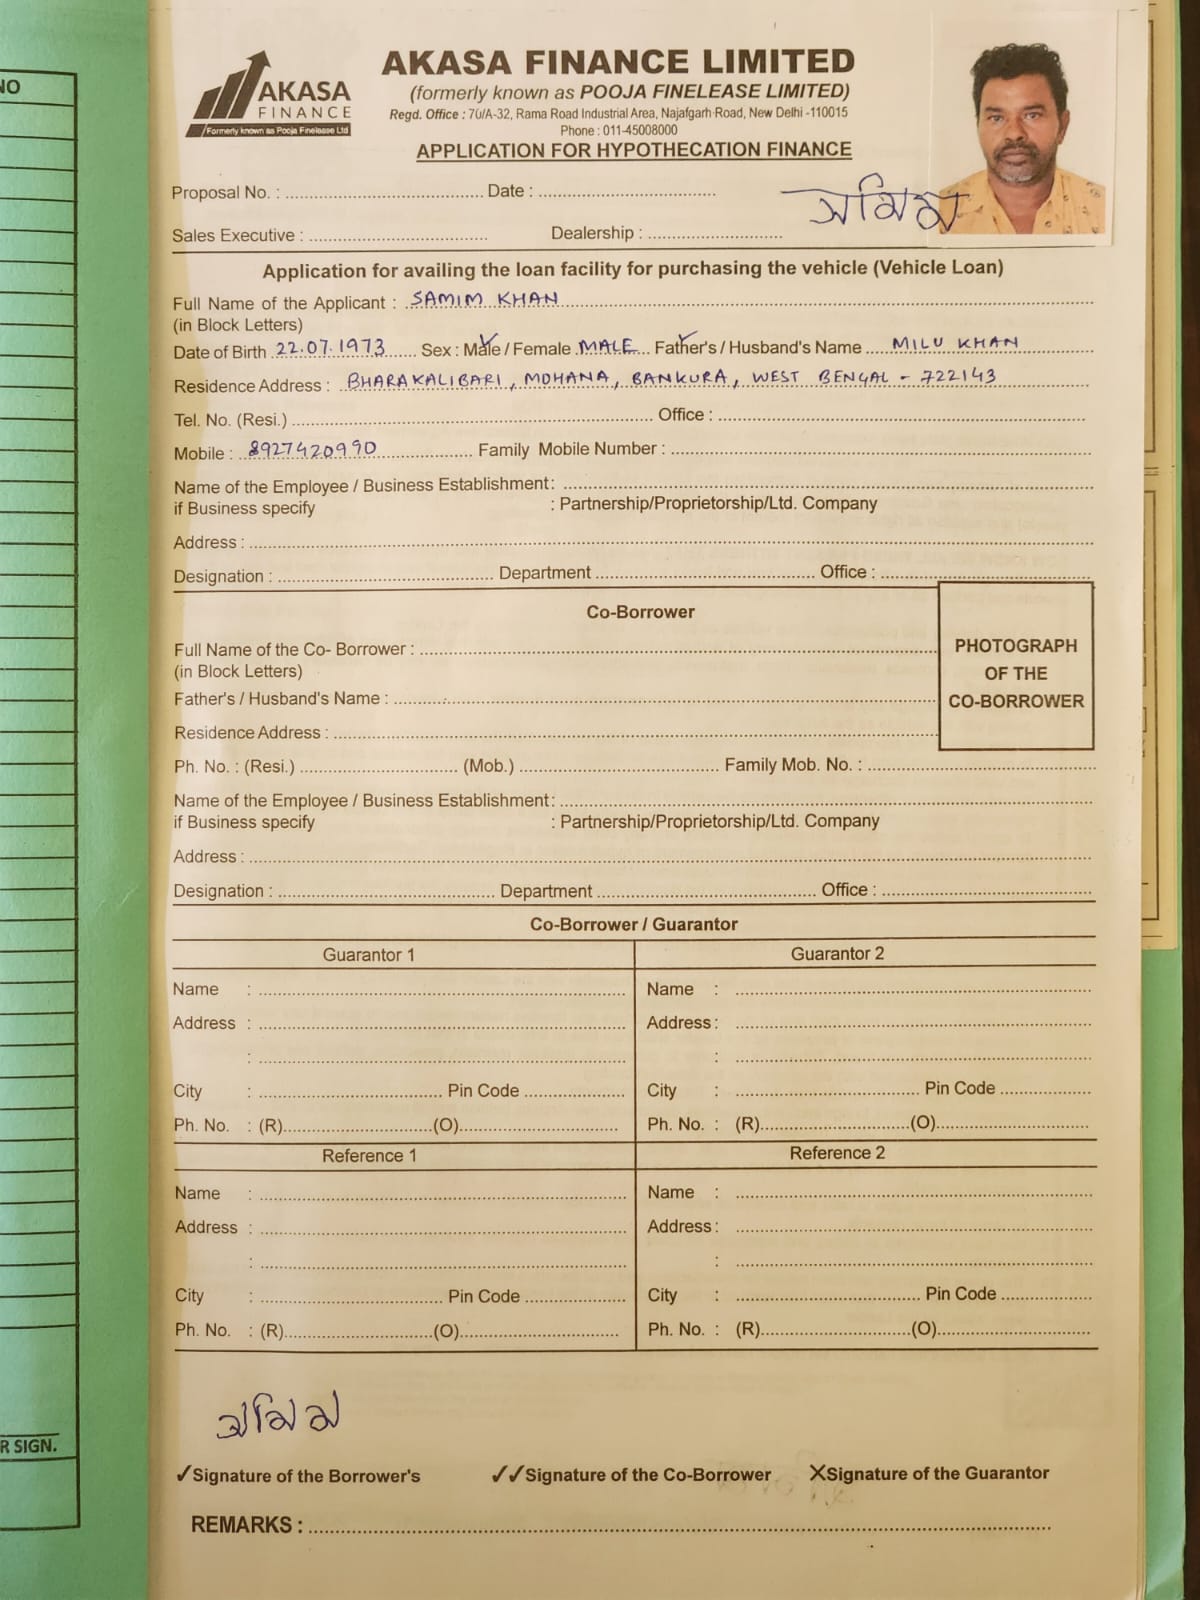 NO
AKASA
FINANCE
Formerly known as Pooja Finelease Ltd
AKASA FINANCE LIMITED
(formerly known as POOJA FINELEASE LIMITED)
Regd. Office : 70/A-32, Rama Road Industrial Area, Najafgarh Road, New Delhi -110015
Phone : 011-45008000
APPLICATION FOR HYPOTHECATION FINANCE
Proposal No. : Date :
সামিম
Sales Executive : Dealership :
Application for availing the loan facility for purchasing the vehicle (Vehicle Loan)
Full Name of the Applicant : SAMIM KHAN
(in Block Letters)
Date of Birth 22.07.1973 Sex : Male / Female MALE Father's / Husband's Name MILU KHAN
Residence Address : BHARAKALIBARI, MOHANA, BANKURA, WEST BENGAL - 722143
Tel. No. (Resi.) Office :
Mobile : 8927420990 Family Mobile Number :
Name of the Employee / Business Establishment:
if Business specify : Partnership/Proprietorship/Ltd. Company
Address :
Designation : Department Office :
Co-Borrower
PHOTOGRAPH
OF THE
CO-BORROWER
Full Name of the Co- Borrower :
(in Block Letters)
Father's / Husband's Name :
Residence Address :
Ph. No. : (Resi.) (Mob.) Family Mob. No. :
Name of the Employee / Business Establishment:
if Business specify : Partnership/Proprietorship/Ltd. Company
Address :
Designation : Department Office :
Co-Borrower / Guarantor
Guarantor 1 Guarantor 2
Name : Name :
Address : Address :
: :
City : Pin Code City : Pin Code
Ph. No. : (R) (O) Ph. No. : (R) (O)
Reference 1 Reference 2
Name : Name :
Address : Address :
: :
City : Pin Code City : Pin Code
Ph. No. : (R) (O) Ph. No. : (R) (O)
সামিম
R SIGN.
✓Signature of the Borrower's ✓✓Signature of the Co-Borrower XSignature of the Guarantor
REMARKS :